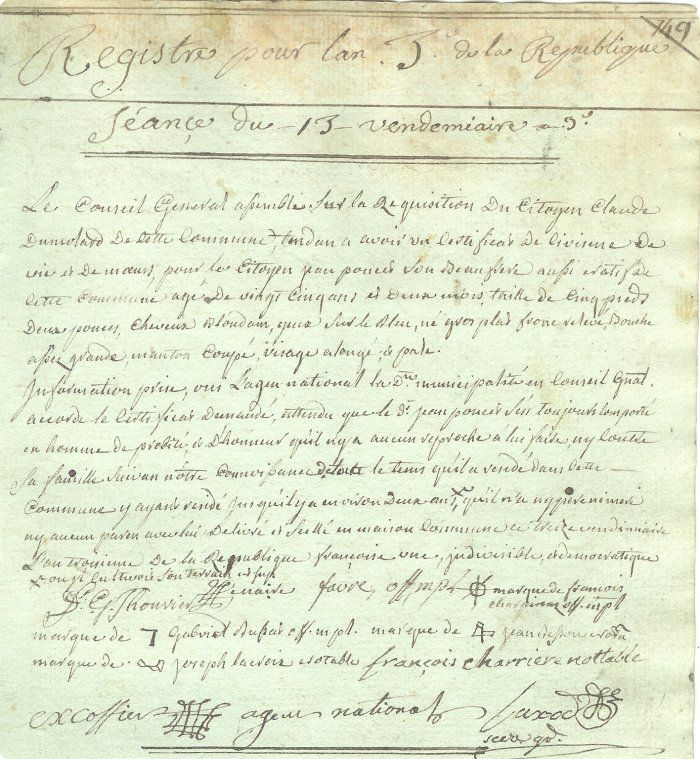 149
Registre pour lan 3.e de la Republique
Séançe du 13 vendemiaire a 3.e
Le Conseil General assemblé sur la Requisition Du Citoyen Claude
Dumolard De Cette Commune, tendan a avoir un Certificat de Civisme De
vie et De mœurs, pour le Citoyen jean poncet Son Beaufrere aussi natif de
Cette Commune agé De vingt Cinq ans et Deux mois, taille de Cinq pieds
Deux pouces, Cheveux Blondain, yeux Sur le Bleu, né gros plat, front relevé, Bouche
assez grande, manton Coupé, visage alongé, et pale.
Information prise, oui L'agen national la D. municipalité en Conseil Gnal.
accorde le Certificat Demandé, attendu que le d. jean poncet s'est toujours Comporté
en homme de probité, et D'honneur qu'il n'y a aucun reproche a lui faire, ny Contre
Sa famille Suivan nôtre Connoissance le tems qu'il a dans Cette
Commune y ayant jusqu'il y a environ Deux ans, qu'il n'a ny pere ni mere
ny aucun paren avec lui Delivré et Scellé en maison Commune ce treize vendimiaire
L'an troisieme De la Republique françoise une, jndivisible, et democratique
et son terrain
J. G. Thouvier maire favre, off mpl marque de francois
off. mpt
marque de Gabriel Dufar off. mpt. marque de jean
marque de joseph lacroix notable françois charriere nottable
excoffier agent national
secre gr.